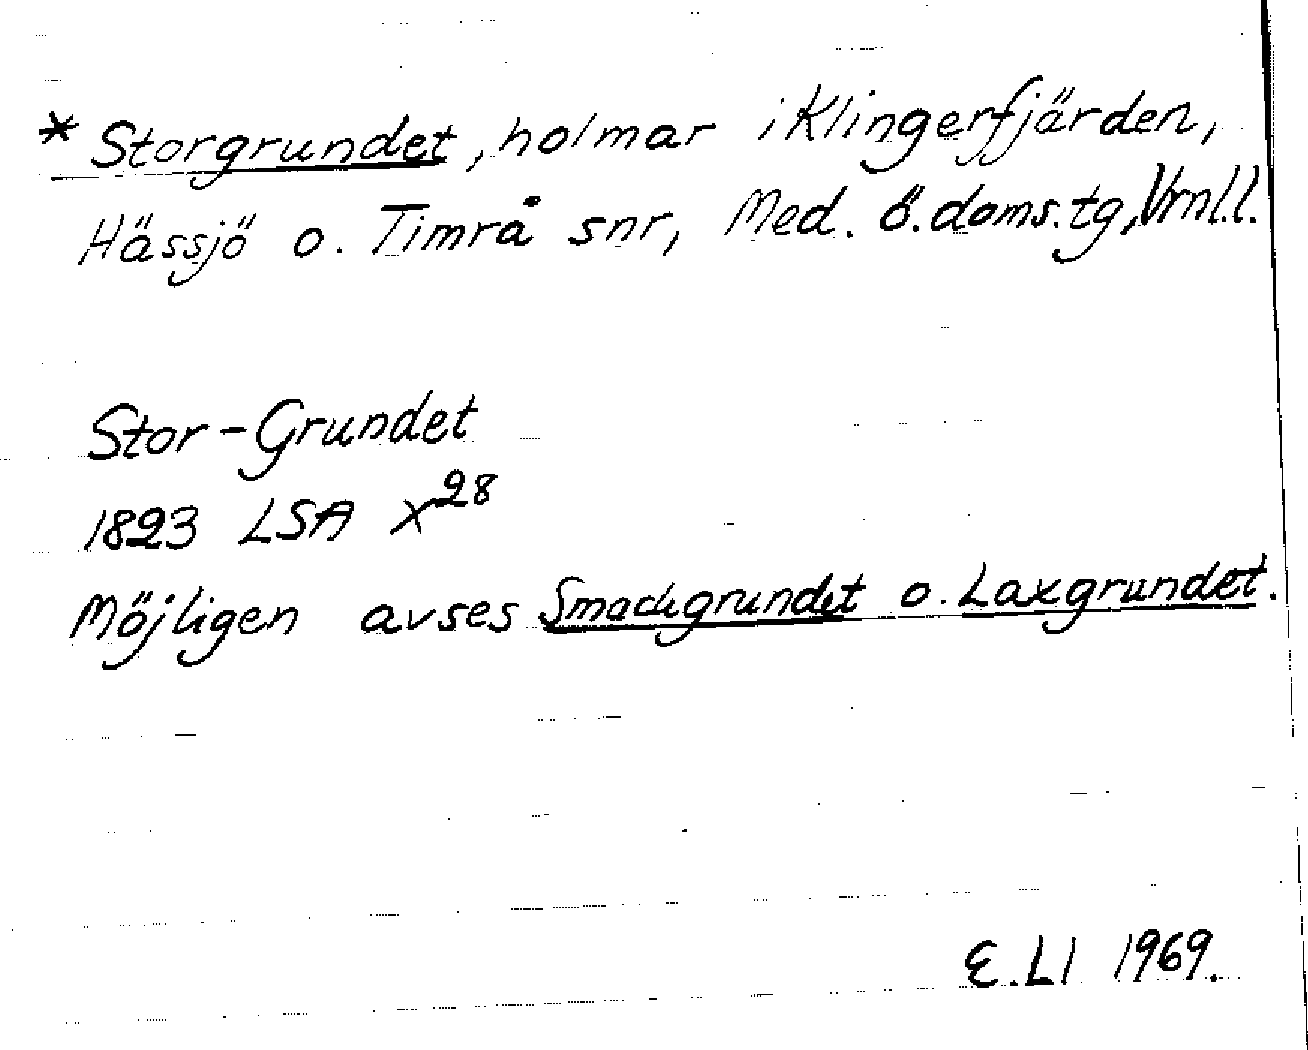 * Storgrundet, holmar i Klingerfjärden,
Hässjö o. Timrå snr, Med. ö. doms.tg, Vrnl.l.
Stor-Grundet
1823 LSA X28
Möjligen avses Smackgrundet o. Laxgrundet.
E.Ll 1969.